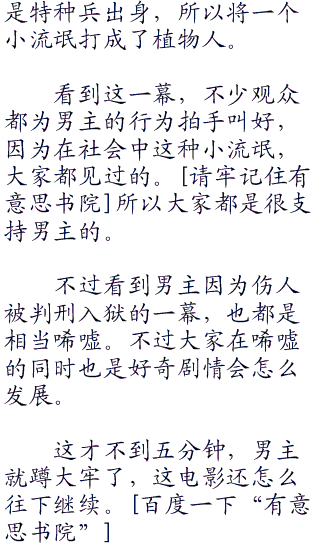 是特种兵出身，所以将一个
小流氓打成了植物人。
看到这一幕，不少观众
都为男主的行为拍手叫好，
因为在社会中这种小流氓，
大家都见过的。[请牢记住有
意思书院]所以大家都是很支
持男主的。
不过看到男主因为伤人
被判刑入狱的一幕，也都是
相当唏嘘。不过大家在唏嘘
的同时也是好奇剧情会怎么
发展。
这才不到五分钟，男主
就蹲大牢了，这电影还怎么
往下继续。[百度一下“有意
思书院”]